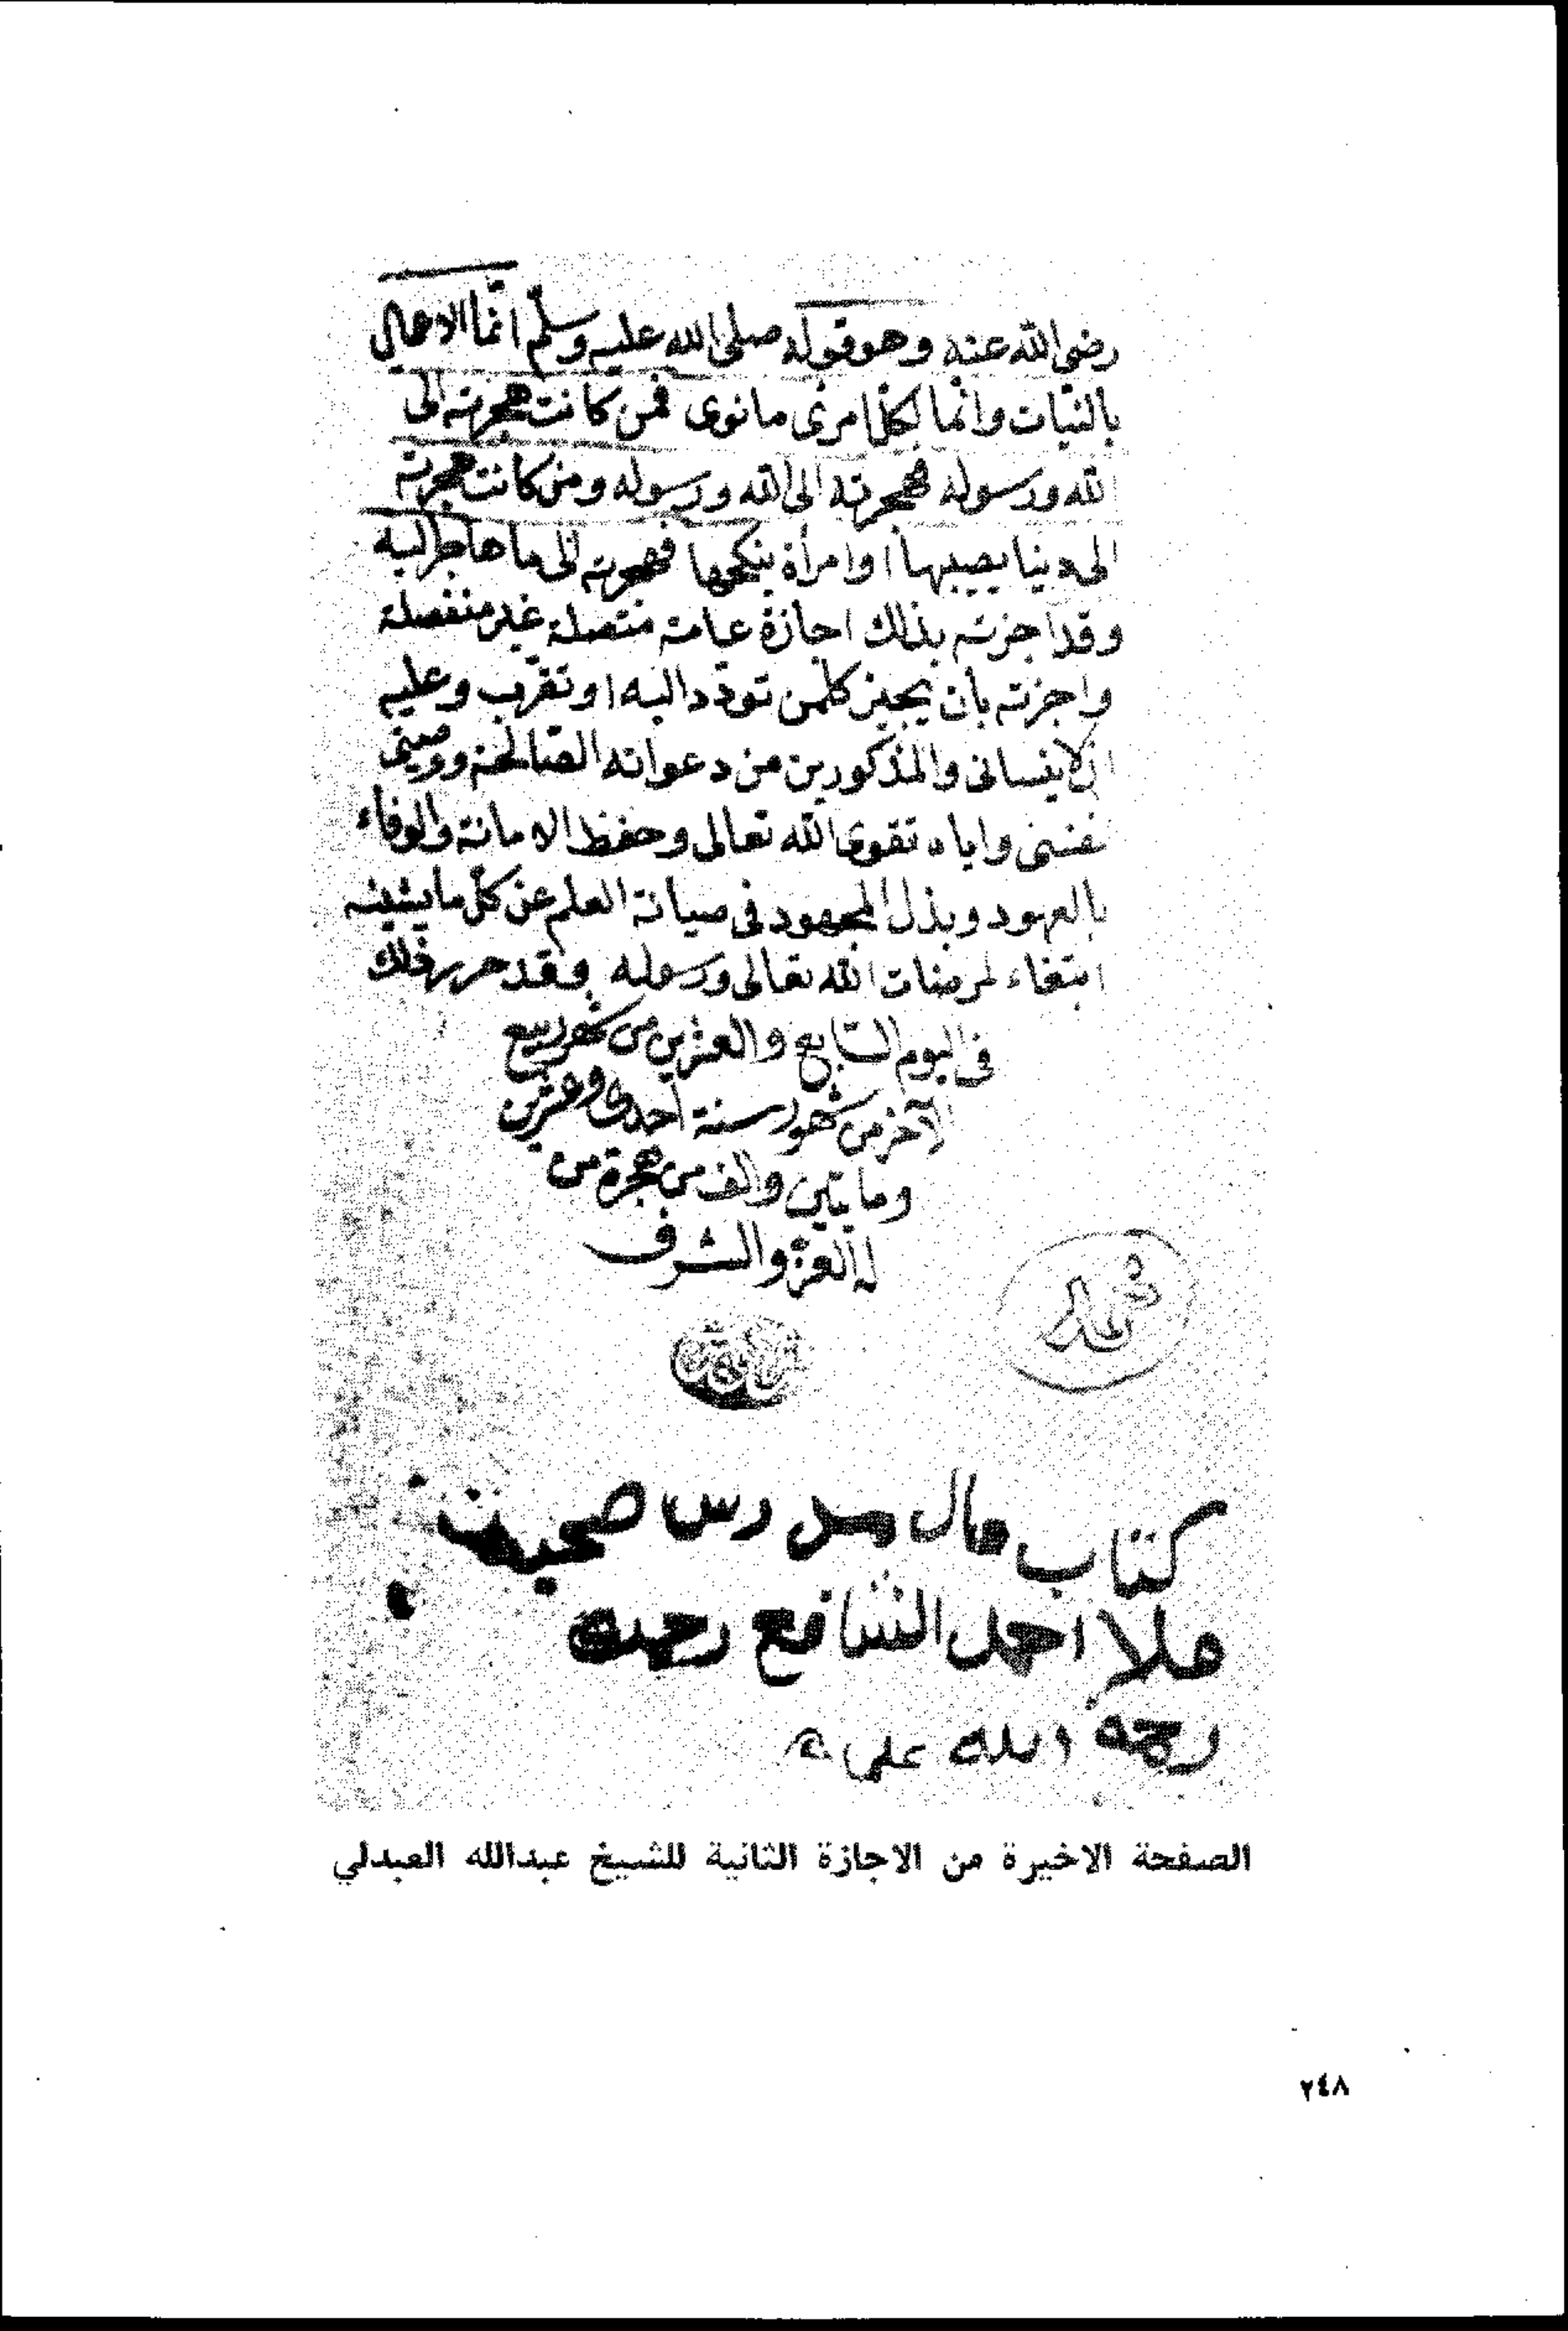 رضى الله عنه وهو قوله صلى الله عليه وسلم انما الاعمال
بالنيّات وانّما لكلّ امرئ ما نوى فمن كانت هجرته الى
الله ورسوله فهجرته الى الله ورسوله ومن كانت هجرته
الى دنيا يصيبها او امرأة ينكحها فهجرته الى ما هاجر اليه
وقد اجزته بذلك اجازة عامة متصلة غير منفصلة
واجزته بأن يجيز كلمن تودّد اليه او تقرّب وعليه
ان لاينسانى والمذكورين من دعواته الصّالحة ووصيتى
نفسى واياه تقوى الله تعالى وحفظ الامانة والوفاء
بالعهود وبذل المجهود فى صيانة العلم عن كلّ ما يشينه
ابتغاء لمرضات الله تعالى ورسوله وقد حرر ذلك
فى اليوم السّابع والعشرين من شهر ربيع
الآخر من شهور سنة احدى وعشرين
ومايتين والف من هجرة من
له العزّ والشرف
كتاب مال مدرس
ملا احمد الشافع رحمة
رحمة الله علي
الصفحة الاخيرة من الاجازة الثانية للشيخ عبدالله العبدلي
٢٤٨